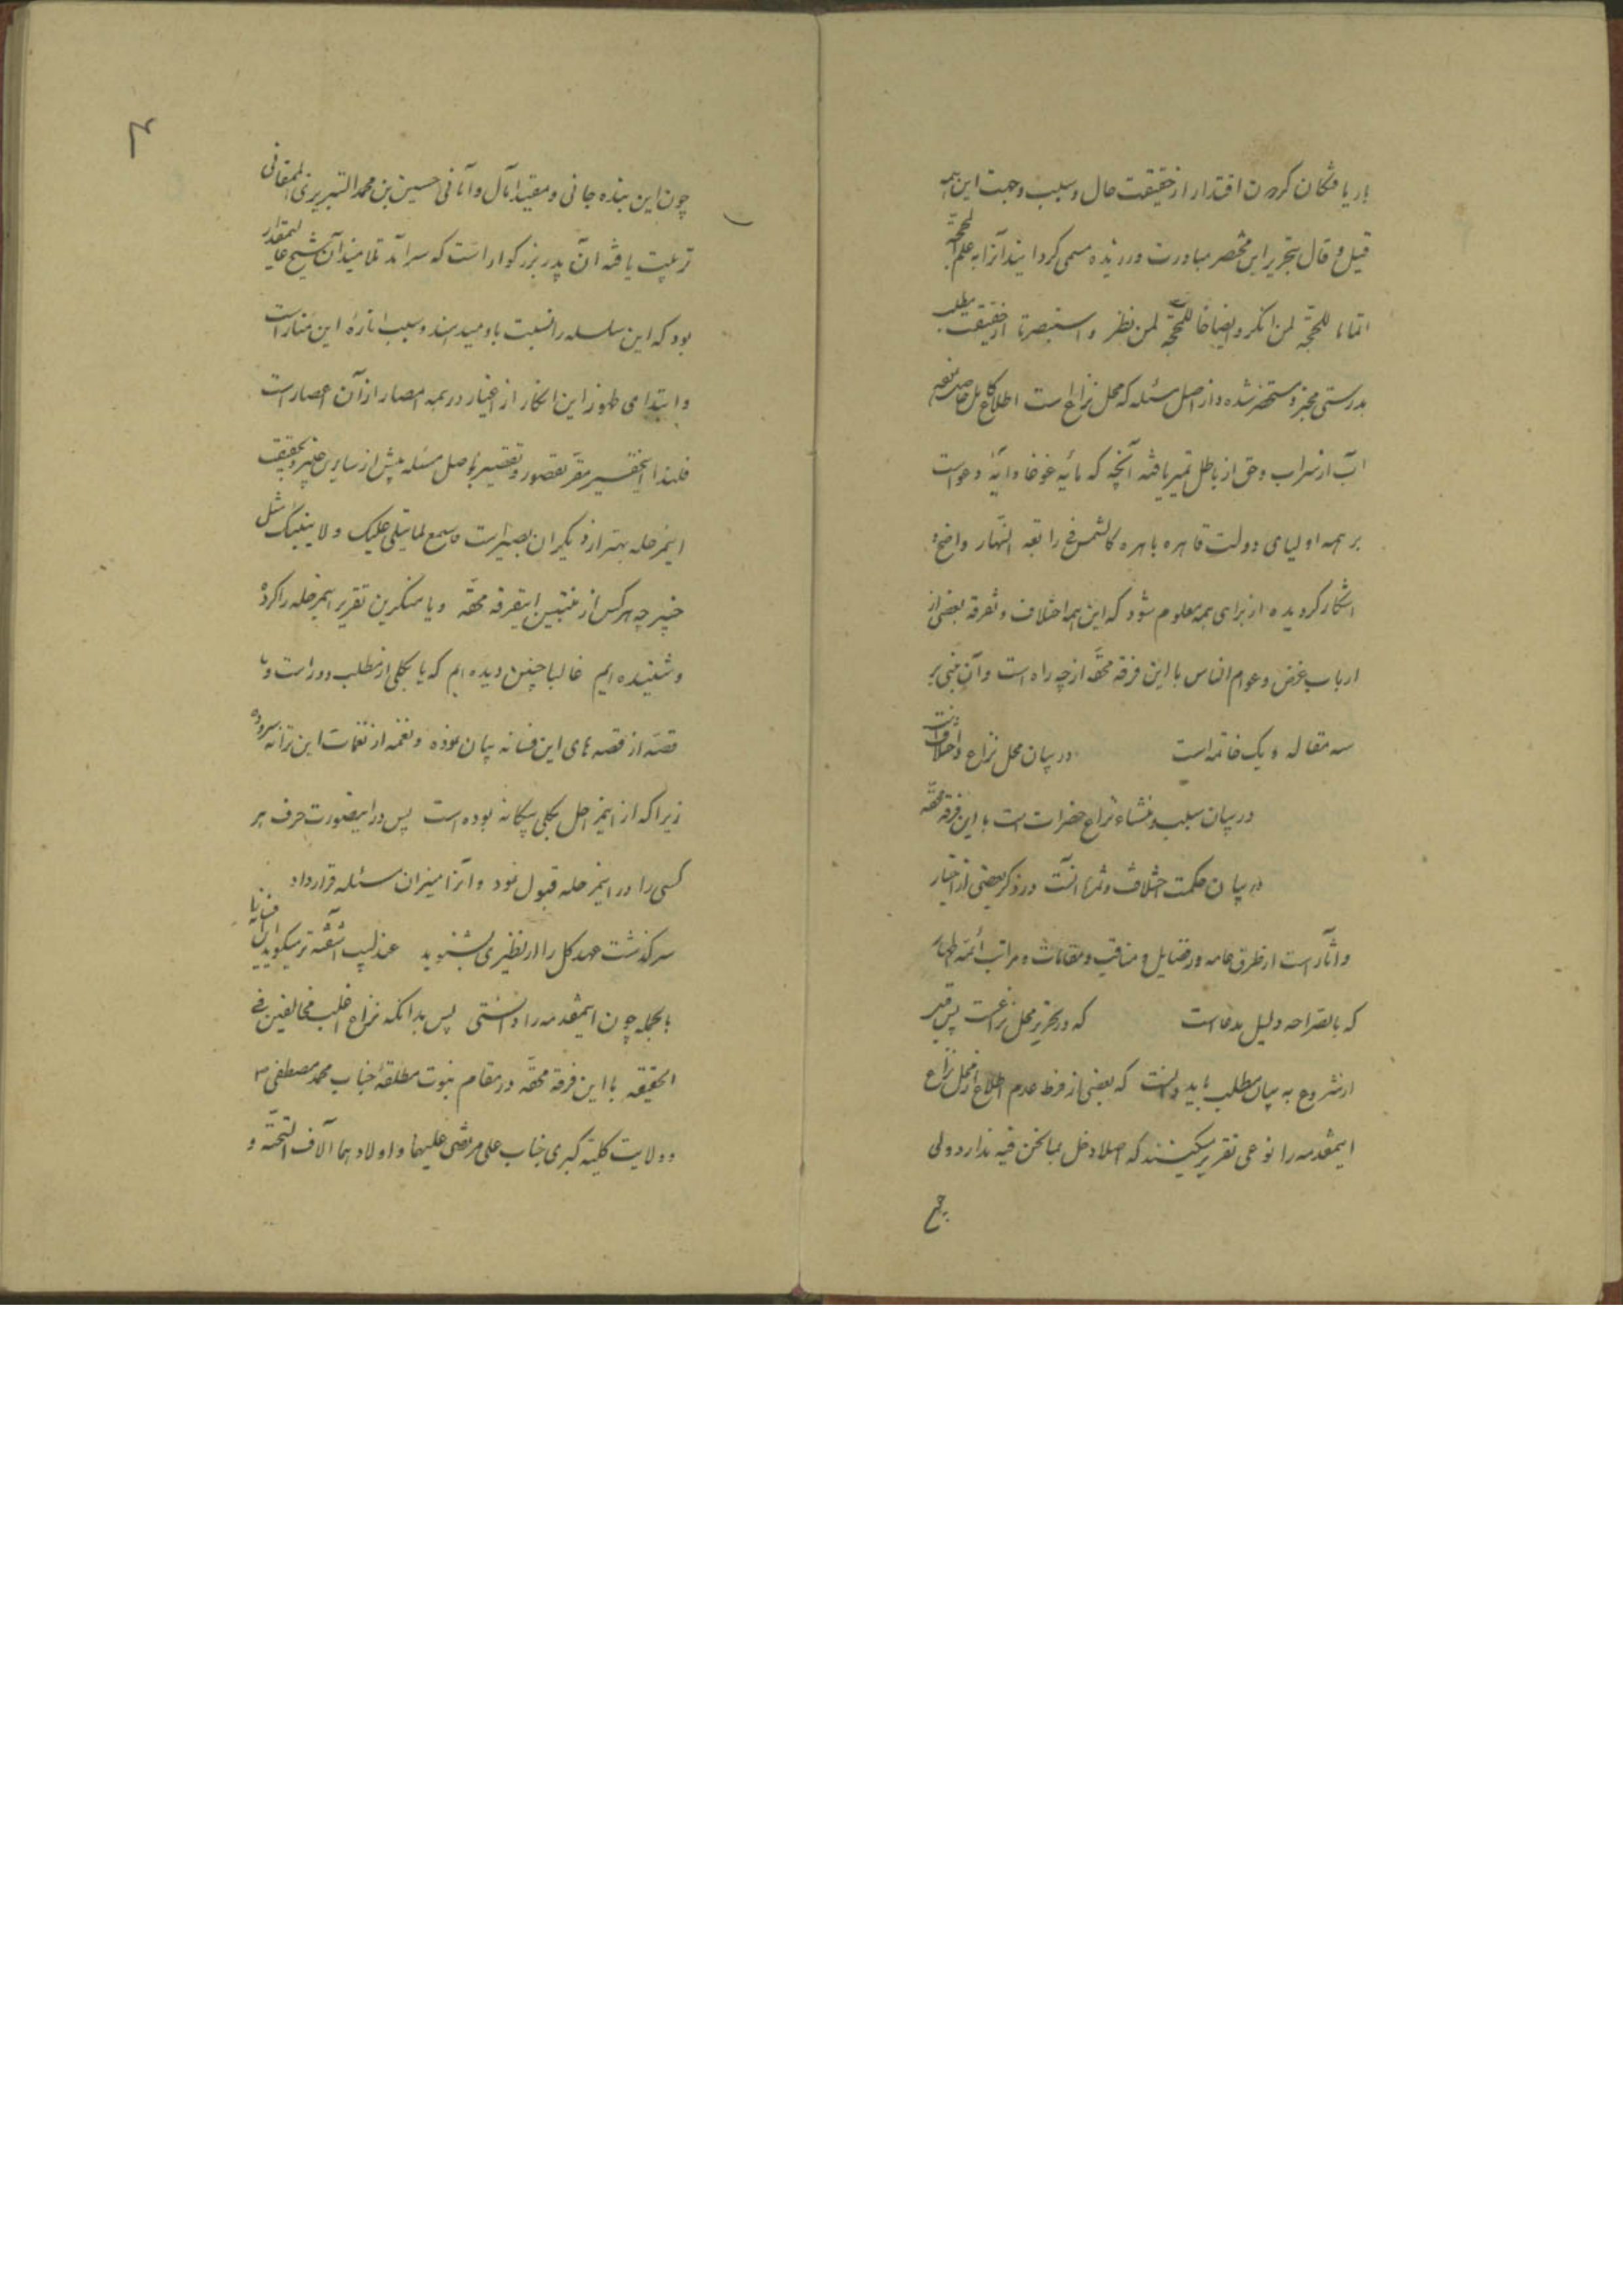 باریافتگان کردون اقتدار از حقیقت حال و سبب و جهت این همه
قیل و قال بتحریر این مختصر مبادرت ورزیده مسمی کردانیدانرا به علم المحجة
اتماما للحجّة لمن انکر و ایضاحا للمحجّة لمن نظر و استبصر تا از حقیقت مطلب
بدرستی مخبر و مستحضر شده و از اصل مسئله که محل نزاع است اطلاع کامل حاصل
آب از سراب و حق از باطل تمیز یافته آنچه که مایه غوغا و آیهٔ دعواست
بر همه اولیای دولت قاهره باهره کالشمس فی رابعة النهار واضح و
اشکار کردیده از برای همه معلوم شود که این همه اختلاف و تفرقه بعضی از
ارباب غرض و عوام الناس با این فرقه محقّه از چه راه است و آن مبنی بر
سه مقاله و یک خاتمه است در بیان محل نزاع و اختلاف
در بیان سبب و منشاء نزاع حضرات است با این فرقه محقّه
در بیان حکمت اختلاف و ثمره انست در ذکر بعضی از اخبار
و آثار است از طرق عامه در فضایل و مناقب و مقامات و مراتب ائمه اطهار
که بالصراحه دلیل مدعاست که در تحریر محل نزاعست پس قبل
از شروع به بیان مطلب باید دانست که بعضی از فرط عدم اطلاع از محل نزاع
اینمقدمه را نوعی تقریر میکینند که اصلا دخل بما نحن فیه ندارد ولی
چون این بنده جانی و مقید آمال و امانی حسین بن محمد التبریزی الممقانی
تربیت یافته آن پدر بزرکوار است که سرآمد تلامیذ آن شیخ عالیمقدار
بود که این سلسله را نسبت باو میدهند و سبب اثارهٔ این منار است
و ابتدای ظهور این انکار از اغیار در همه امصار از آن اعصار است
فلهذا اینحقیر مقرّ بقصور و تقصیر باصل مسئله پیش از سایرین خبیر و بحقیقت
اینمرحله بهتر از دیکران بصیر است فاسمع لما یتلی علیک و لا ینبئک مثل
خبیر چه هرکس از منتسبین اینفرقه محقّه و یا منکرین تقریر اینمرحله را کرده
و شنیده ایم غالبا چنین دیده ایم که یا بکلی از مطلب دور است و یا
قصّه از قصه های این فسانه بیان نموده و نغمه از نغمات این ترانه سروده
زیرا که از اینمراحل بکلی بیکانه بوده است پس در اینصورت حرف هر
کسی را در اینمرحله قبول نمود و انرا میزان مسئله قرار داد
سرکذشت عهد کل را از نظیری بشنوید عندلیب آشفته تر میکوید این افسانه را
بالجمله چون اینمقدمه را دانستی پس بدانکه نزاع اغلب مخالفین فی
الحقیقه با این فرقه محقّه در مقام نبوت مطلقهٔ جناب محمد مصطفی ص
و ولایت کلیّه کبری جناب علی مرتضی علیهما و اولادهما آلاف التحیّه و